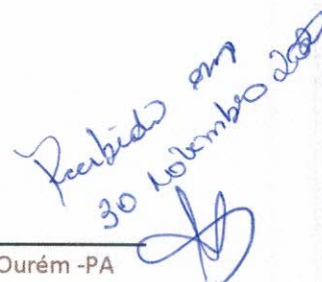 Recebido em
30 Novembro
Ourém -PA